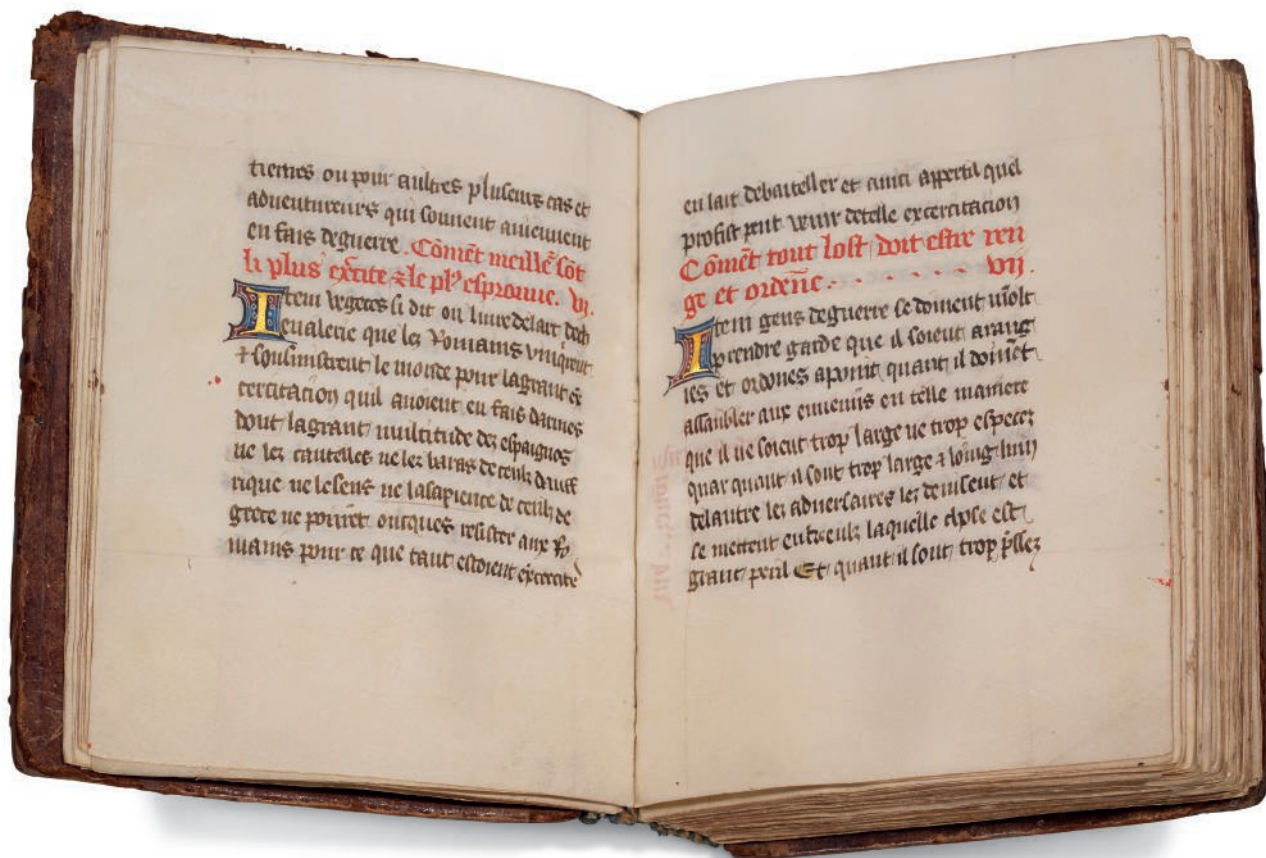 tiemes ou pour aultres pluseurs cas et
aduentureurs qui souuent auiennent
en fais deguerre. Cōmēt meille᷑ sōt
li plus exc̄ite ⁊ le plꝰ esprouue. vj.
Item vegeces si dit ou liure delart dech
eualerie que lez Romains vniqrent
⁊ sousmistrent le monde pour lagrant ex
cercitacion quil auoient en fais darmes
dont lagrant multitude dez espaignos
ne lez cautelles ne lez baras de ceulz dauff
rique ne lesens ne lasapience de ceulz de
grece ne porrēt oncques resister aux Ro
mains pour ce que tant estoient excercite
en lart debateiller et ainci appert quel
profist peut venir detelle excercitacion
Cōmēt tout lost doit estre ren
ge et ordēne . . . . . . vij.
Item gens deguerre se doiuent mōlt
prendre garde que il soient arang
ies et ordones apoint quant il doiuēt
assambler aux ennemis en telle maniere
que il ne soient trop large ne trop especez
quar quant il sont trop large ⁊ loing lun
delautre lez aduersaires lez deuisent et
se mettent entreulz laquelle chose est
grant peril Et quant il sont trop p̄ssez